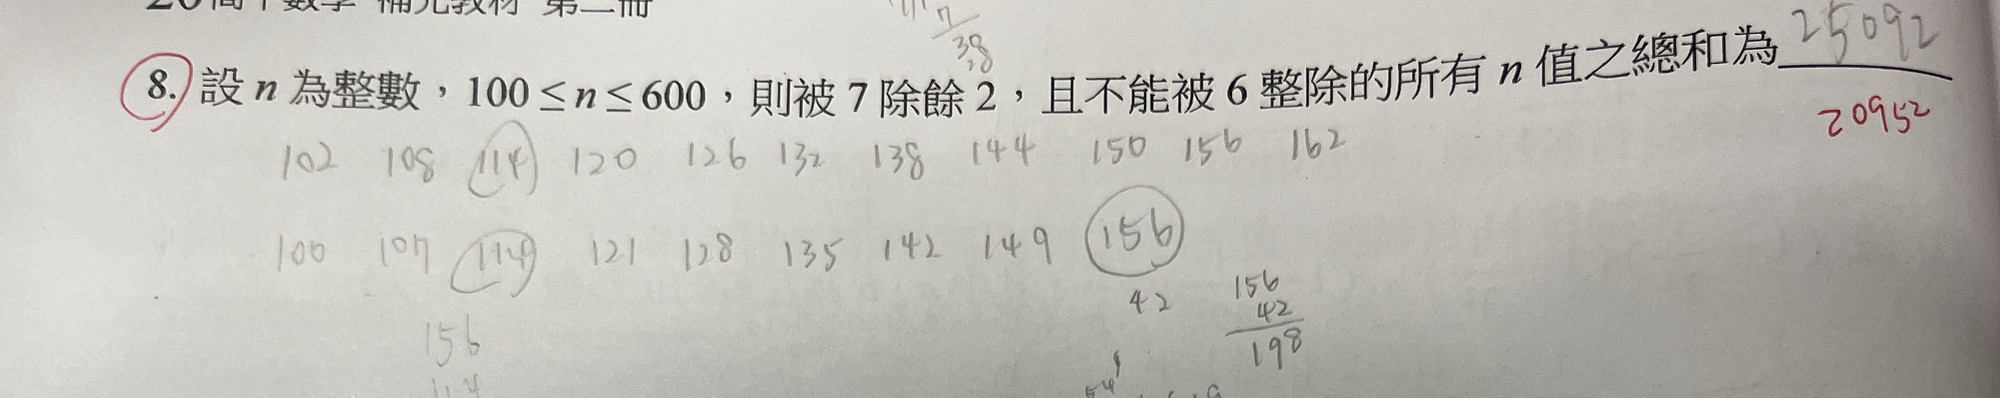 第二冊
38
8. 設 n 為整數，100≤n≤600，則被 7 除餘 2，且不能被 6 整除的所有 n 值之總和為 25092
20952
102 108 114 120 126 132 138 144 150 156 162
100 107 114 121 128 135 142 149 156
42
156
42
198
156
114